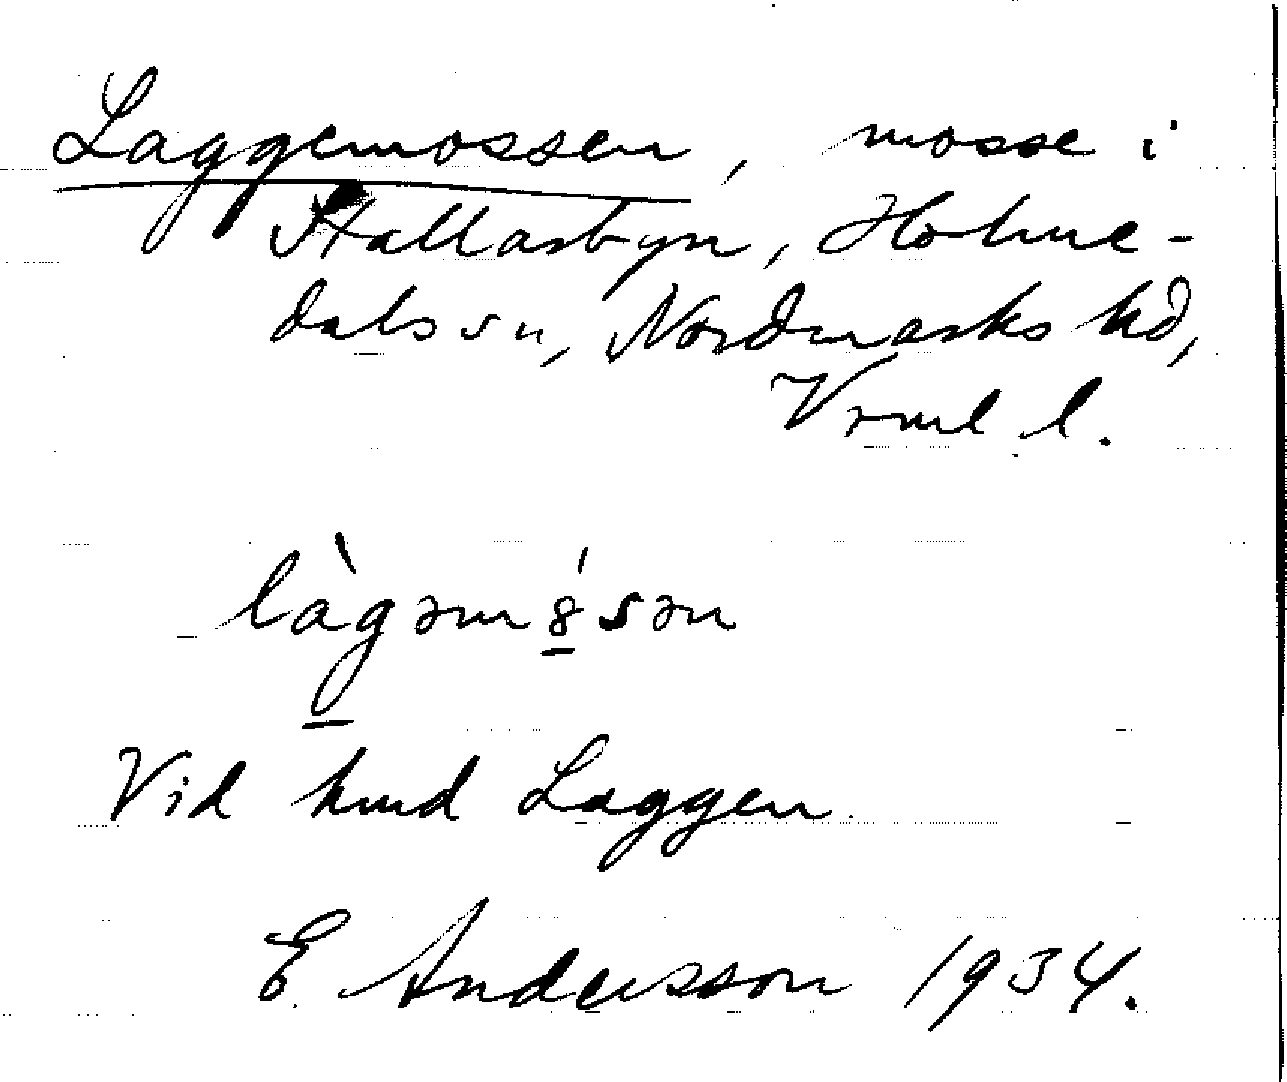 Laggemossen, mosse i
Stallarbyn, Holme-
dals sn, Nordmarks hd,
Vrml l.
làgəm8́sən
Vid hmd Laggen.
E. Andersson 1934.